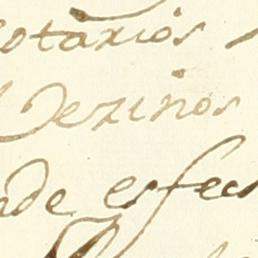 otarios
Vezinos
ade esfec